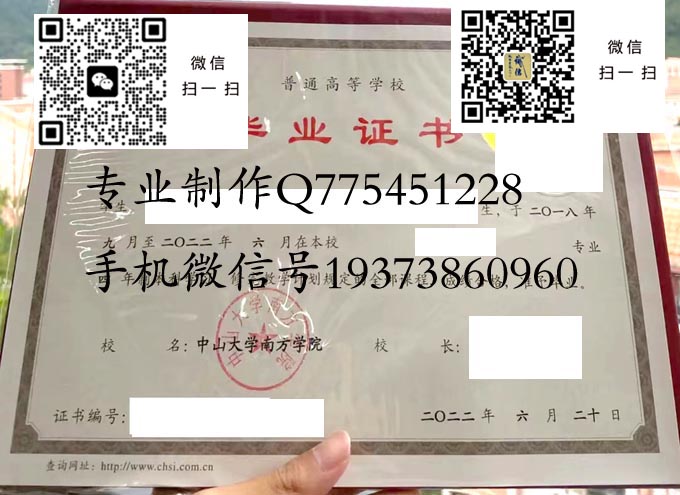 微信
扫一扫
微信
扫一扫
普通高等学校
毕业证书
专业制作Q775451228
生,于二〇一八年
九月至二〇二二年 六月在本校 专业
手机微信号19373860960
成绩合格,准予毕业。
校 名:中山大学南方学院 校 长:
证书编号: 二〇二二年 六月 二十日
查询网址:http://www.chsi.com.cn